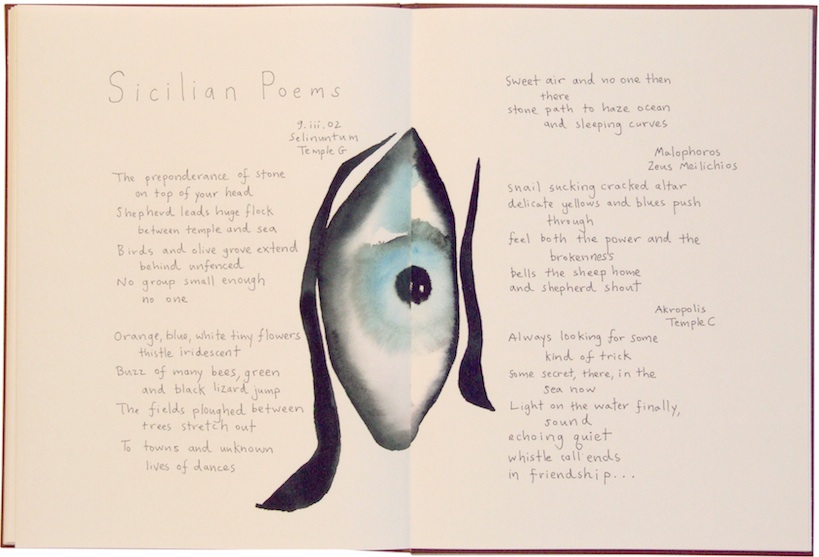 Sicilian Poems
9.iii.02
Selinuntum
Temple G
The preponderance of stone
on top of your head
Shepherd leads huge flock
between temple and sea
Birds and olive grove extend
behind unfenced
No group small enough
no one
Orange, blue, white tiny flowers
thistle iridescent
Buzz of many bees, green
and black lizard jump
The fields ploughed between
trees stretch out
To towns and unknown
lives of dances
Sweet air and no one then
there
stone path to haze ocean
and sleeping curves
Malophoros
Zeus Meilichios
snail sucking cracked altar
delicate yellows and blues push
through
feel both the power and the
brokenness
bells the sheep home
and shepherd shout
Akropolis
Temple C
Always looking for some
kind of trick
some secret, there, in the
sea now
Light on the water finally,
sound
echoing quiet
whistle call ends
in friendship...